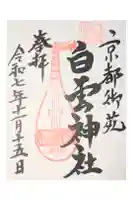 京都御苑
白雲神社
奉拝
令和七年十一月十五日